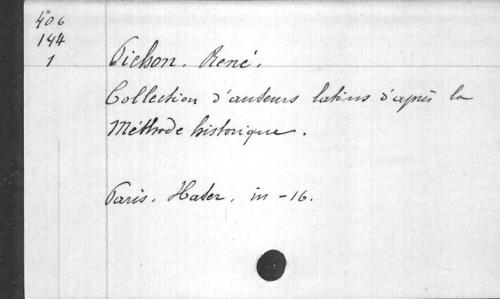 406
144
1
Pichon. René.
Collection d'auteurs latins d'après la
Méthode historique.
Paris. Hatier. in-16.